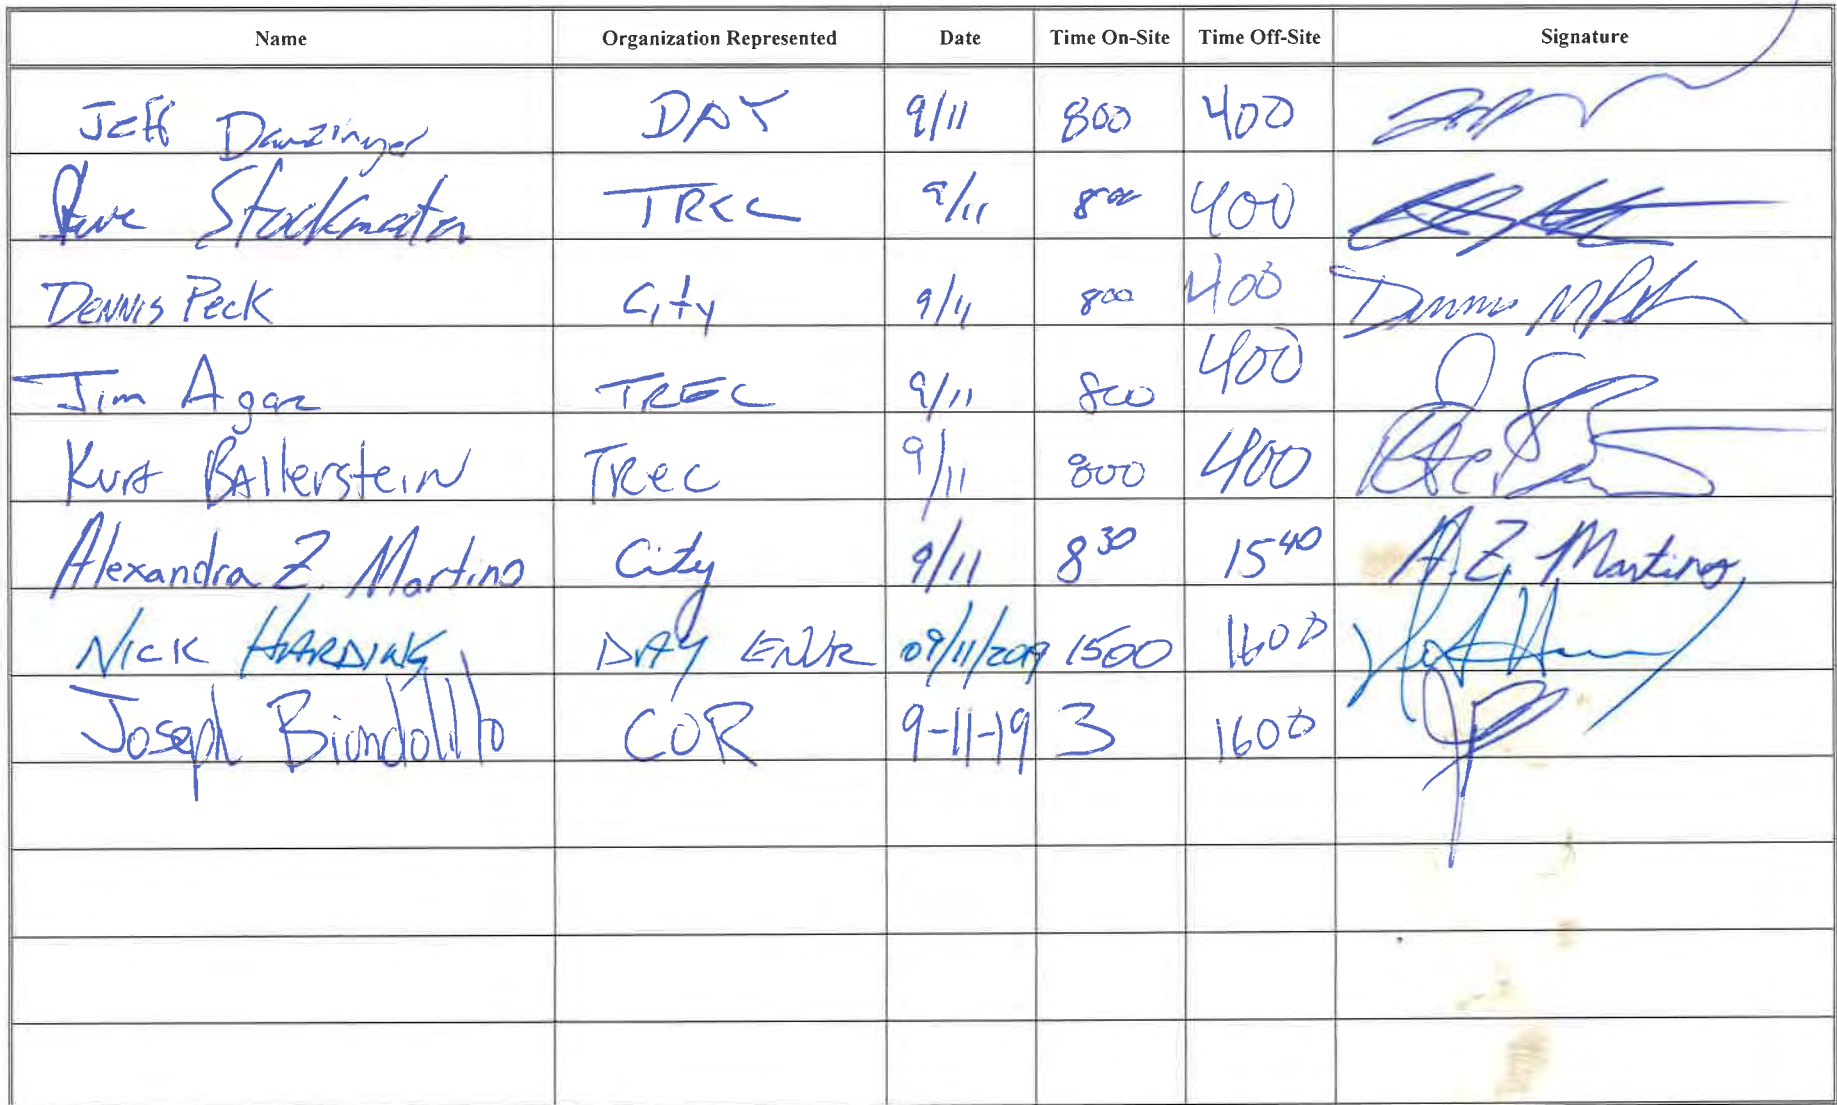 Name Organization Represented Date Time On-Site Time Off-Site Signature
Jeff Danzinger DAY 9/11 800 400
Steve Stockmaster TREC 9/11 800 400
DENNIS Peck City 9/11 800 400 Dennis M Peck
Jim Agar TREC 9/11 800 400
Kurt BAllerstein TRec 9/11 800 400
Alexandra Z. Martino City 9/11 830 1540 A.Z. Martino
NICK HARDING DAY ENVR 09/11/2019 1500 1600
Joseph Biondolillo COR 9-11-19 3 1600